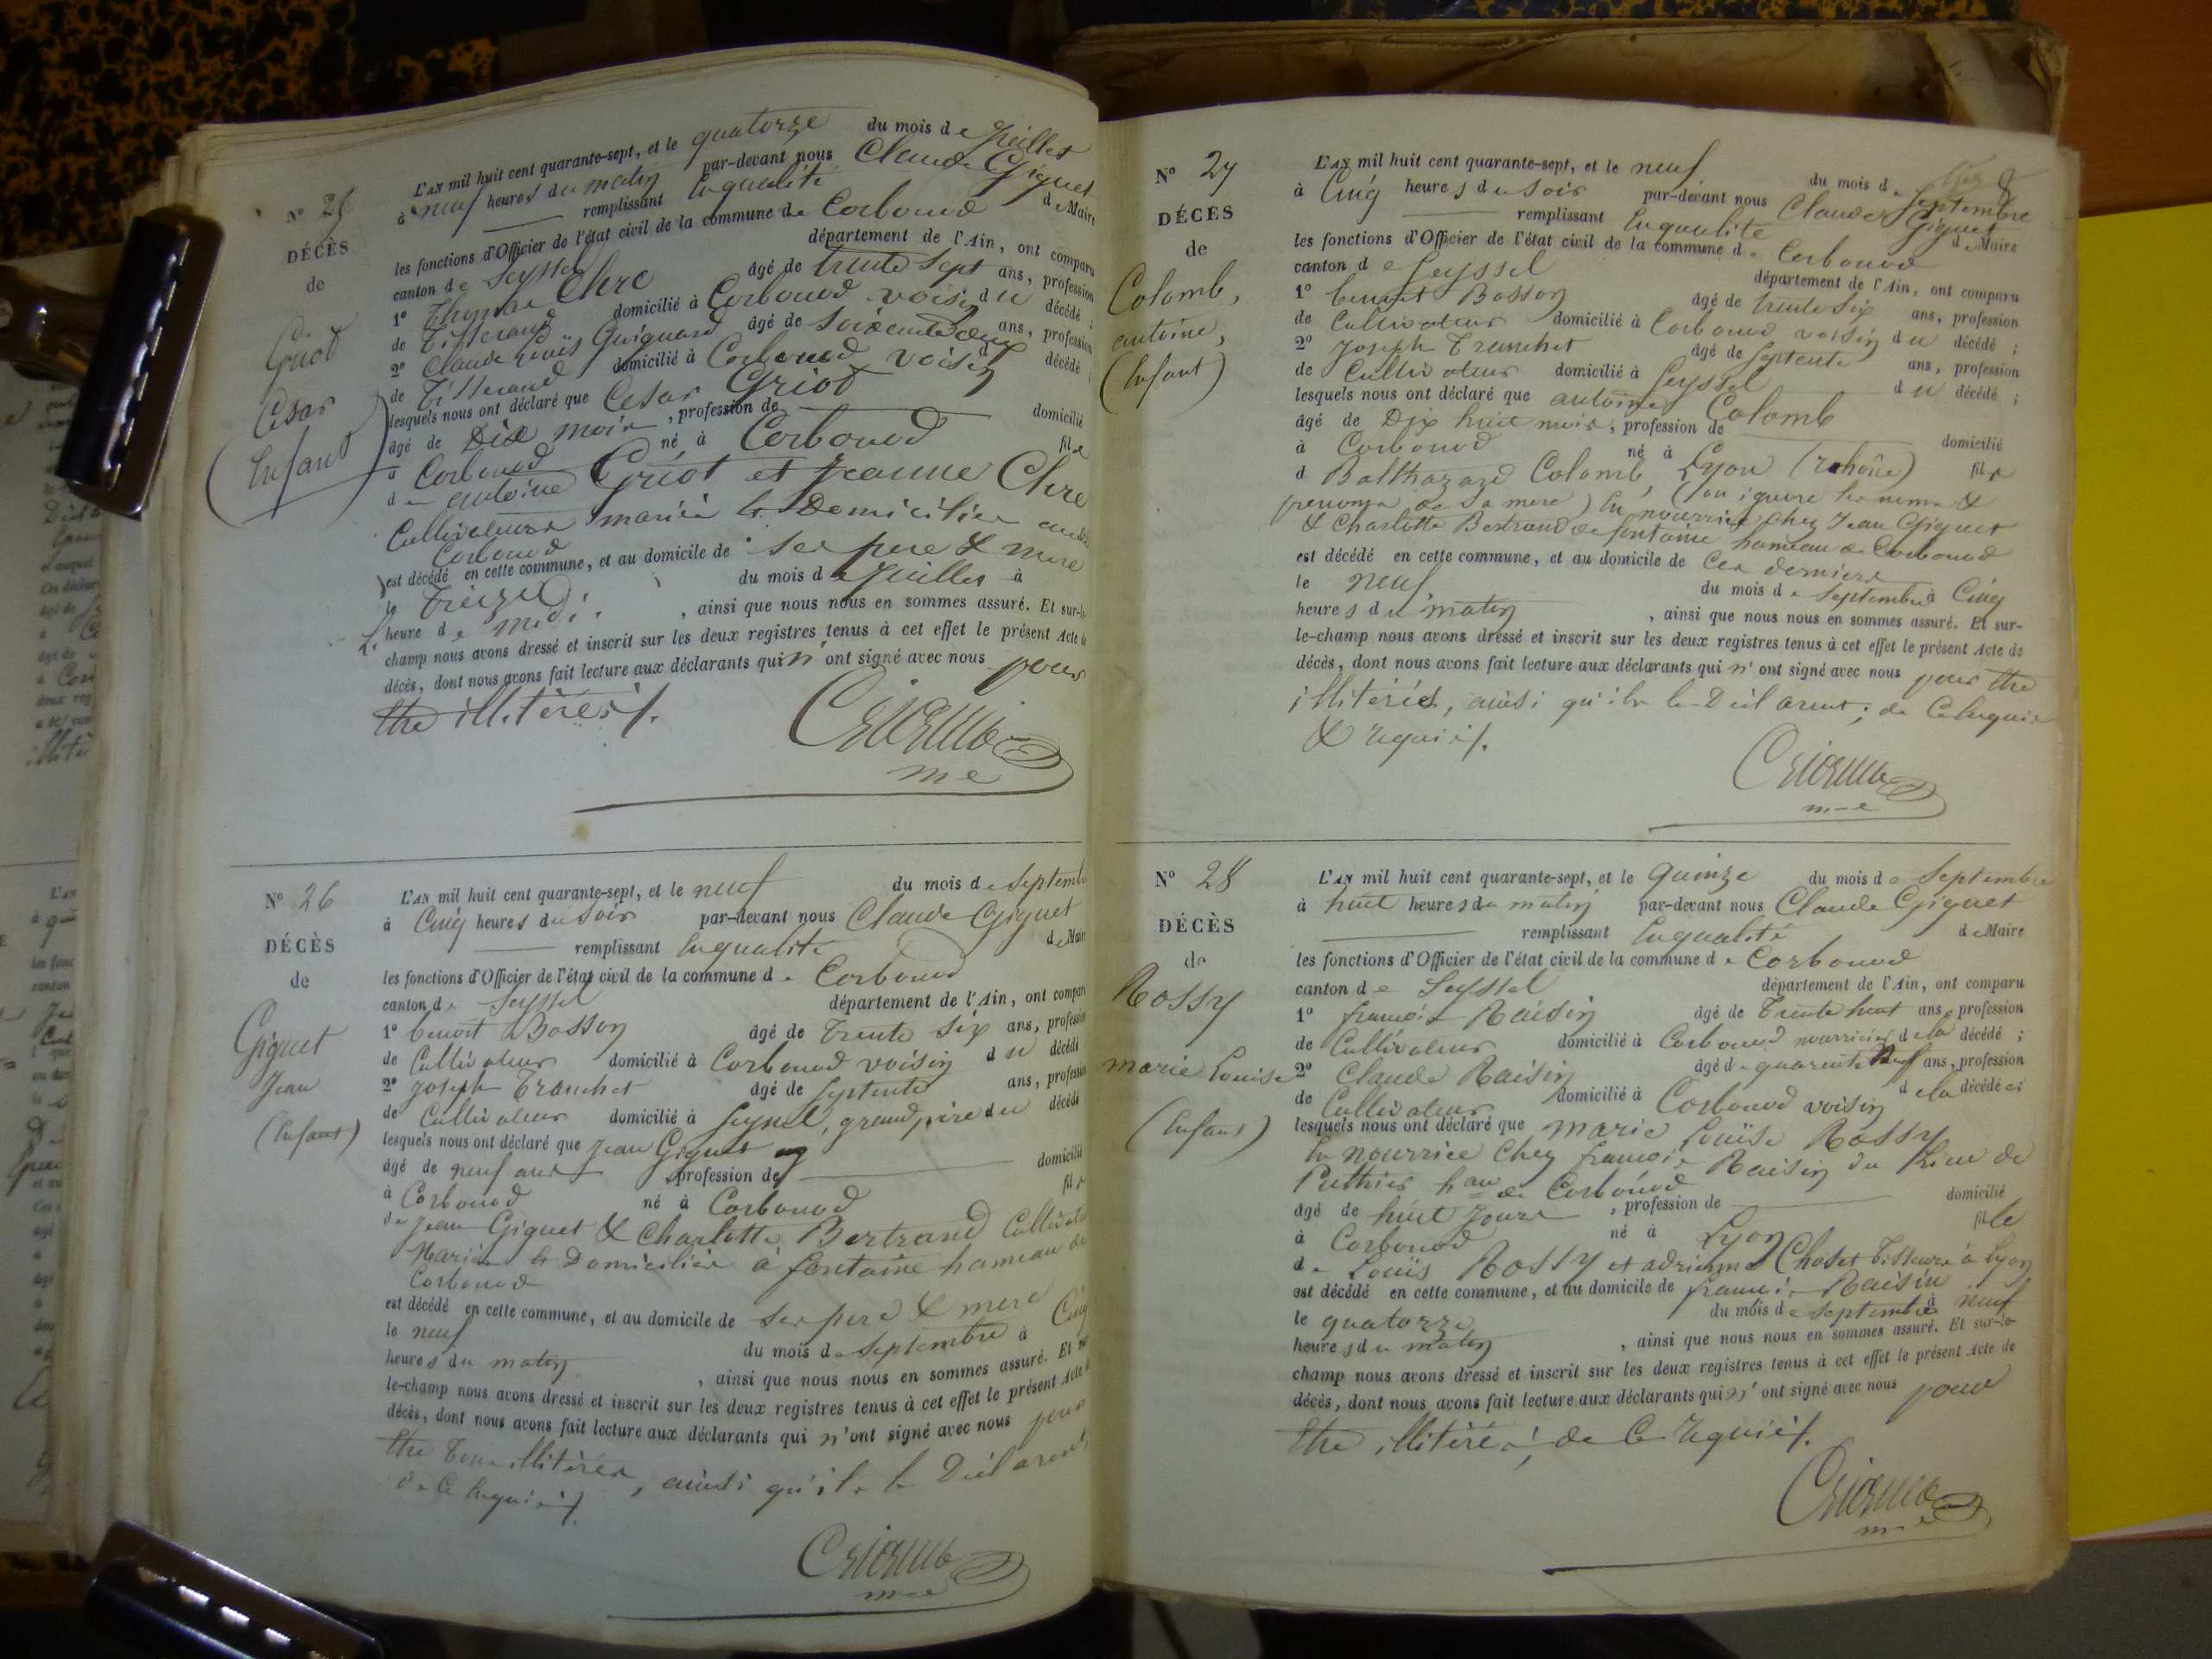 N° 25
DÉCÈS
de
Griot
Cesar
(Enfant)
L'AN mil huit cent quarante-sept, et le quatorze du mois de Juillet
à neuf heures du matin par-devant nous Claude Giguet
remplissant En qualité de Maire
les fonctions d'Officier de l'état civil de la commune de Corbonod
canton de Seyssel département de l'Ain, ont comparu
1° Thomas Clerc âgé de trente sept ans, profession
de Tisserand domicilié à Corbonod voisin du décédé ;
2° Claude Louis Guignard âgé de soixante deux ans, profession
de Tisserand domicilié à Corbonod voisin d décédé
lesquels nous ont déclaré que Cesar Griot
âgé de Dix mois, profession de domicilié
à Corbonod né à Corbonod fils
de antoine Griot et Jeanne Clerc
Cultivateurs mariés & Domiciliés audit
Corbonod
est décédé en cette commune, et au domicile de ses pere & mere
le Treize du mois de Juillet à
heure de midi, ainsi que nous nous en sommes assuré. Et sur-le-
champ nous avons dressé et inscrit sur les deux registres tenus à cet effet le présent Acte de
décès, dont nous avons fait lecture aux déclarants qui n'ont signé avec nous pour
être illitérés /.
m e
N° 26
DÉCÈS
de
Giguet
Jean
(Enfant)
L'AN mil huit cent quarante-sept, et le neuf du mois de Septembre
à Cinq heures du soir par-devant nous Claude Giguet
remplissant En qualité de Maire
les fonctions d'Officier de l'état civil de la commune de Corbonod
canton de Seyssel département de l'Ain, ont comparu
1° benoit Bosson âgé de Trente Six ans, profession
de Cultivateur domicilié à Corbonod voisin du décédé
2° Joseph Tranchet âgé de Septente ans, profession
de Cultivateur domicilié à Seyssel, grand pere du décédé
lesquels nous ont déclaré que Jean Giguet
âgé de neuf ans, profession de domicilié
à Corbonod né à Corbonod fils
de Jean Giguet & Charlotte Bertrand Cultivateurs
Mariés & Domiciliés à fontaine hameau de
Corbonod
est décédé en cette commune, et au domicile de ses pere & mere
le neuf du mois de Septembre à Cinq
heures du matin, ainsi que nous nous en sommes assuré. Et sur-
le-champ nous avons dressé et inscrit sur les deux registres tenus à cet effet le présent Acte de
décès, dont nous avons fait lecture aux déclarants qui n'ont signé avec nous pour
être Tous illitérés, ainsi qu'ils le Déclarent,
de Ce Enquis /.
m e
N° 27
DÉCÈS
de
Colomb,
antoine,
(Enfant)
8
L'AN mil huit cent quarante-sept, et le neuf du mois de Septembre
à Cinq heures du soir par-devant nous Claude Giguet
remplissant En qualité de Maire
les fonctions d'Officier de l'état civil de la commune de Corbonod
canton de Seyssel département de l'Ain, ont comparu
1° benoit Bosson âgé de trente Six ans, profession
de Cultivateur domicilié à Corbonod voisin du décédé ;
2° Joseph Tranchet âgé de Septente ans, profession
de Cultivateur domicilié à Seyssel du décédé ;
lesquels nous ont déclaré que antoine Colomb
âgé de Dix huit mois, profession de domicilié
à Corbonod né à Lyon (rohône) fils
d Balthazard Colomb, (on ignore les noms &
prenoms de Sa mere) En nourrice chez Jean Giguet
& Charlotte Bertrand de fontaine hameau de Corbonod
est décédé en cette commune, et au domicile de Ces derniers
le neuf du mois de Septembre à Cinq
heures du matin, ainsi que nous nous en sommes assuré. Et sur-
le-champ nous avons dressé et inscrit sur les deux registres tenus à cet effet le présent Acte de
décès, dont nous avons fait lecture aux déclarants qui n'ont signé avec nous pour être
illitérés, ainsi qu'ils le Déclarent ; de Ce Enquis
& requis /.
m e
N° 28
DÉCÈS
de
Rossy
marie Louise
(Enfant)
L'AN mil huit cent quarante-sept, et le quinze du mois de Septembre
à huit heures du matin par-devant nous Claude Giguet
remplissant En qualité de Maire
les fonctions d'Officier de l'état civil de la commune de Corbonod
canton de Seyssel département de l'Ain, ont comparu
1° francois Raisin âgé de Trente huit ans, profession
de Cultivateur domicilié à Corbonod nourricier de la décédé ;
2° Claude Raisin âgé de quarente neuf ans, profession
de Cultivateur domicilié à Corbonod voisin de la décédée ;
lesquels nous ont déclaré que marie Louïse Rossy
En nourrice Chez francois Raisin du Lieu de
Puthier hau de Corbonod
âgé de huit Jours, profession de domicilié
à Corbonod né à Lyon fille
de Louïs Rossy et adrienne Chatet Tisseurs à Lyon
est décédé en cette commune, et au domicile de francois Raisin
le quatorze du mois de Septembre à neuf
heures du matin, ainsi que nous nous en sommes assuré. Et sur-le-
champ nous avons dressé et inscrit sur les deux registres tenus à cet effet le présent Acte de
décès, dont nous avons fait lecture aux déclarants qui n'ont signé avec nous pour
être illitérés, de Ce requis /.
m e